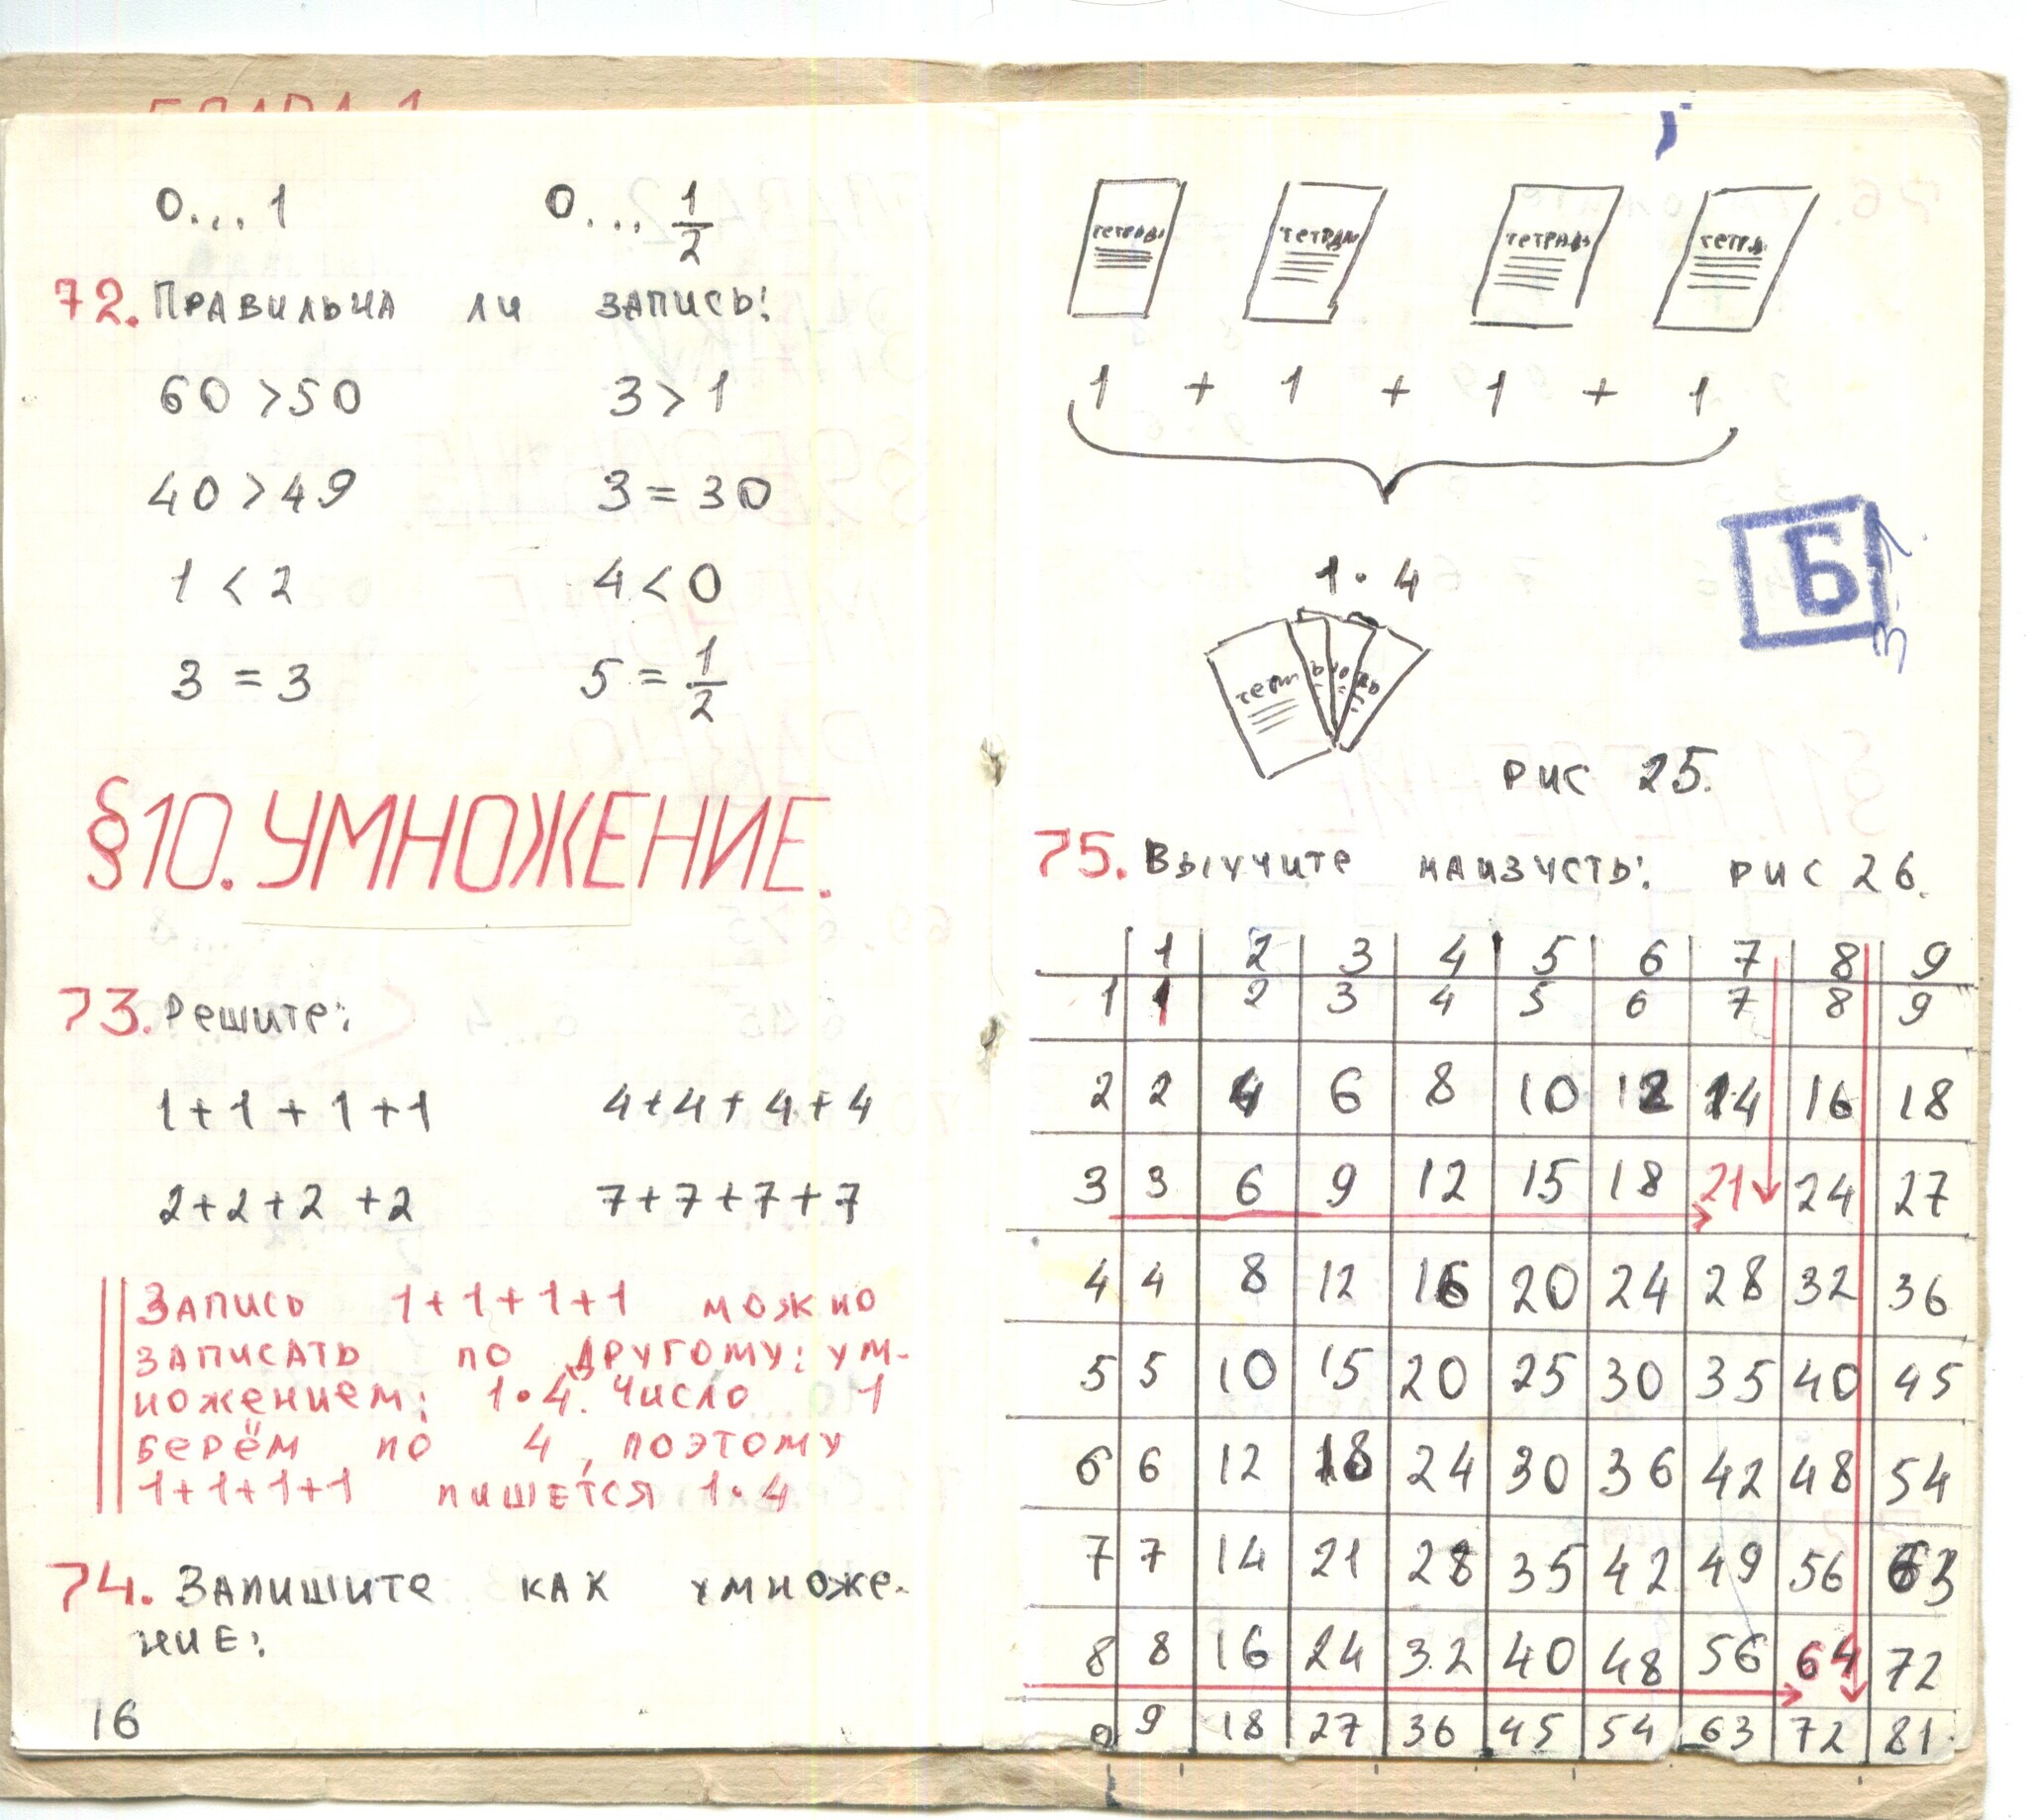 0...1 0...1/2
72. Правильна ли запись:
60 > 50 3 > 1
40 > 49 3 = 30
1 < 2 4 < 0
3 = 3 5 = 1/2
§10. УМНОЖЕНИЕ.
73. Решите:
1+1+1+1 4+4+4+4
2+2+2+2 7+7+7+7
Запись 1+1+1+1 можно
записать по другому: ум-
ножением: 1•4. число 1
берём по 4, поэтому
1+1+1+1 пишется 1•4
74. Запишите как умноже-
ние:
16
тетрадь тетрадь тетрадь
1 + 1 + 1 + 1
1•4
Б
рис 25.
75. Выучите наизусть: рис 26.
1 2 3 4 5 6 7 8 9
1 1 2 3 4 5 6 7 8 9
2 2 4 6 8 10 12 14 16 18
3 3 6 9 12 15 18 21 24 27
4 4 8 12 16 20 24 28 32 36
5 5 10 15 20 25 30 35 40 45
6 6 12 18 24 30 36 42 48 54
7 7 14 21 28 35 42 49 56 63
8 8 16 24 32 40 48 56 64 72
9 9 18 27 36 45 54 63 72 81